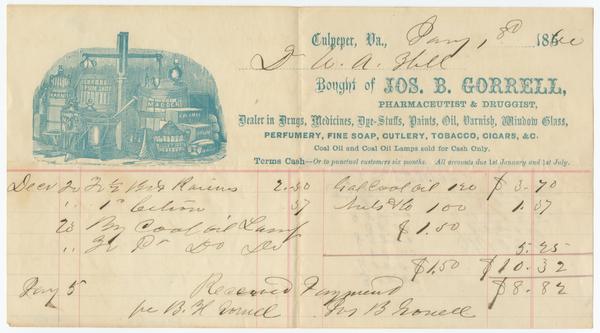 Culpeper, Va., Jany 1, 1860
Dr W. A. Hill
Bought of JOS. B. GORRELL,
PHARMACEUTIST & DRUGGIST,
Dealer in Drugs, Medicines, Dye-Stuffs, Paints, Oil, Varnish, Window Glass,
PERFUMERY, FINE SOAP, CUTLERY, TOBACCO, CIGARS, &C.
Coal Oil and Coal Oil Lamps sold for Cash Only.
Terms Cash—Or to punctual customers six months. All accounts due 1st January and 1st July.
Raisins 2.50 Gal Coal Oil 120 $3.70
1 " Citron 37 Nuts 100 1.37
23 By Coal oil Lamp $1.50
" Pr Do Do 5.25
$1.50 $10.32
Jany 5 Received Payment $8.82
per B. H. Gorrell Jos B Gorrell